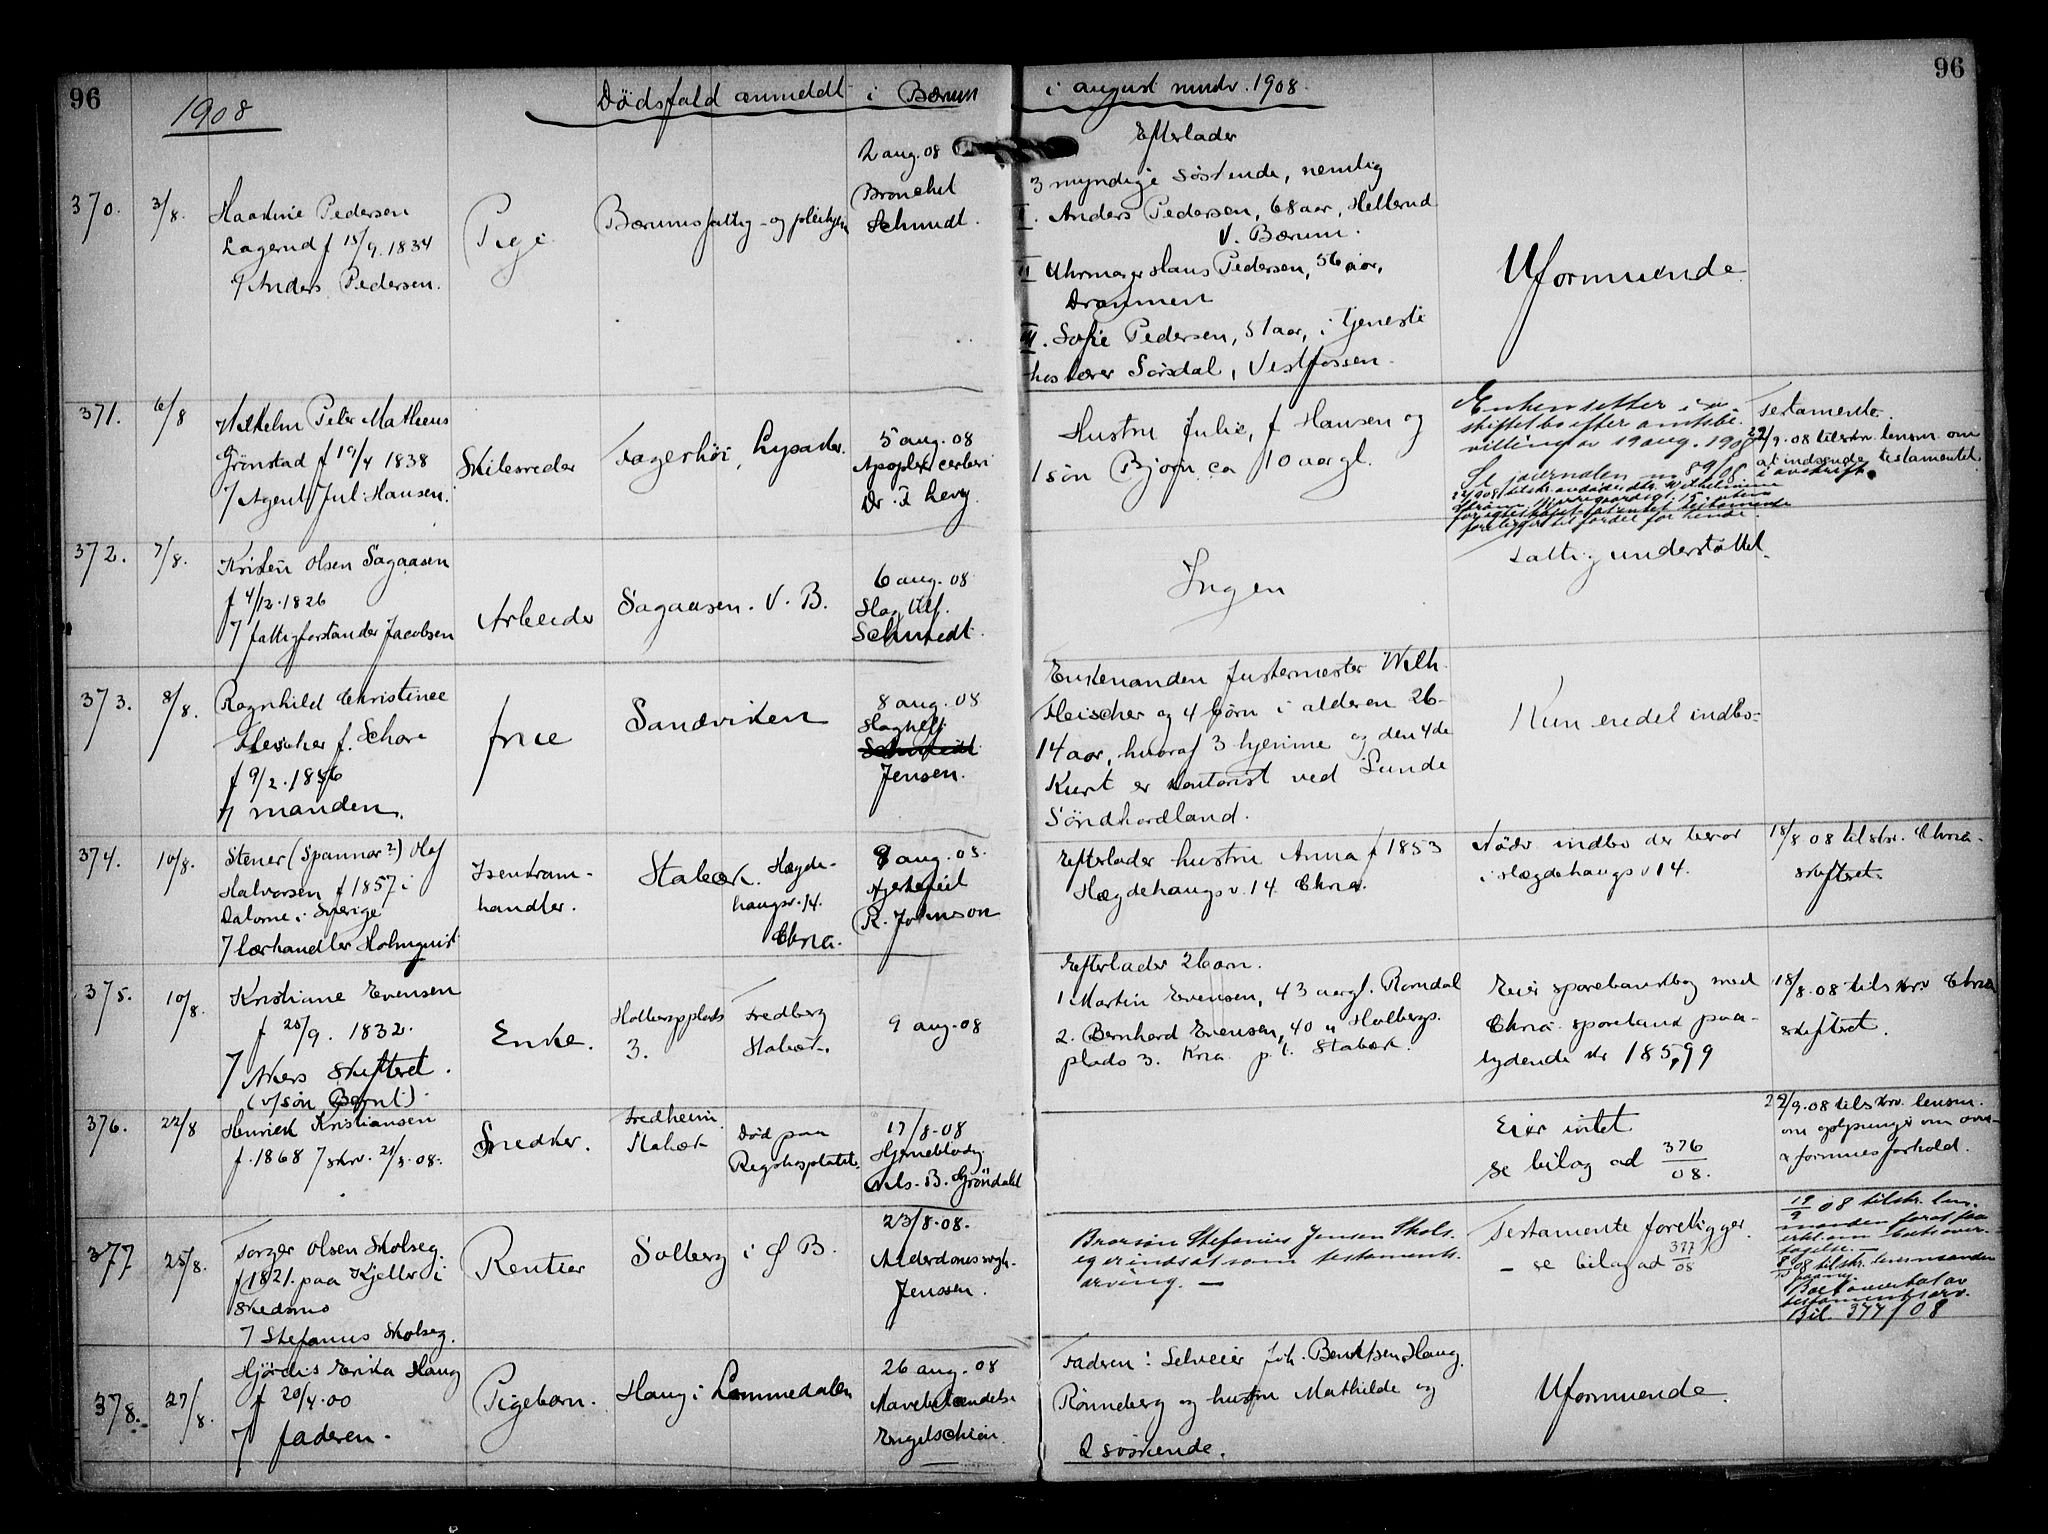 96
96
1908
Dödsfald anmeldt i Bærum
i august mndr. 1908.
370.
3/8.
Pedersen
Lagerud f 15/9.1834
7 Anders Pedersen.
Pige
Bærums fattig- og pleiehjem
2 aug. 08
Bronchit
Schmidt.
Efterlader
3 myndige söskende, nemlig
I. Anders Pedersen, 68 aar, Hellerud
V. Bærum.
II Uhrmager Hans Pedersen, 56 aar,
Drammen
III. Sofie Pedersen, 51 aar, i tjeneste
hos lærer Sörsdal, Vestfossen.
Uformuende
371.
6/8
Wilhelm Peter Matheus
Grönstad f 19/4 1838
7 Agent Jul. Hansen.
Skibsreder
Fagerhöi, Lysaker.
5 aug. 08
Apoplex cerebri
Dr. I Levy.
Hustru Julie, f Hansen og
1 sön Bjorn ca 10 aar gl.
Enken sitter i
skiftet bo efter amtsbe-
villing av 19 aug. 1908
Se journalen
foreligger til fordel for hende.
Testamente.
22/9.08 tilskr. lensm. om
at indsende testamentet
i avskrift.
372.
7/8.
Kristen Olsen Sagaasen
f 4/12.1826
7 fattigforstander Jacobsen
Arbeider
Sagaasen. V. B.
6 aug. 08
Slagtilf.
Schmidt.
Ingen
Fattigunderstöttet.
373.
8/8.
Ragnhild Christinee
Fleischer f.
f 9/2.18
7 manden.
frue
Sandviken
8 aug. 08
Slagtilf.
Schmidt
Jensen.
Enkemanden Justermester Wilh.
Fleischer og 4 börn i alderen 26-
14 aar, hvoraf 3 hjemme og den 4de
Kurt er kontorist ved Lunde
Söndhordland.
Kun en del indbo-
374.
10/8.
Stener (Spannar?) Olaf
Halvorsen f 1857 i
Dalarne i Sverige
7 lærhandler Holmquist
Isenkram-
handler.
Stabæk.
Hægde-
haugsv. 14.
Chria.
9 aug. 08.
Hjertefeil
R. Johnson
Efterlader hustru Anna f 1853
Hægdehaugsv. 14 Chria.
Nödv. indbo der beror
i Hægdehaugsv 14.
18/8.08 tilskr. Chria-
skifteret.
375.
10/8.
Kristiane Evensen
f 25/9. 1832.
7 Akers Skifteret.
(v/sön Bernt).
Enke.
Holbergsplads
3.
Fredberg
Stabæk.
9 aug. 08
Efterlader 2 barn.
1 Martin Evensen, 43 aar gl. Romdal
2. Bernhard Evensen, 40 " Holbergs.
plads 3. Kria p.t. Stabæk.
Eier sparebankbog med
Chria. sparebank paa-
lydende kr 185,99
18/8.08 tilskrv Chria
skifteret.
376.
22/8
Henrik Kristiansen
f. 1868 7 skrv. 21/8.08.
Snedker.
Fredheim
Stabæk
Död paa
Rigshospitalet.
17/8-08
Hjerneblödg.
Nils. B. Gröndahl
Eier intet
se bilag ad 376/08.
22/9.08 tilskrv. lensm.
om oplysninger om arve-
& formuesforhold.
377
25/8.
Torger Olsen Skolseg.
f 1821. paa Kjeller i
Skedsmo
7 Stefanus Skolseg.
Rentier
Solberg i Ö B.
23/8.08.
Alderdomssvagh.
Jenssen.
Brorsön Stefanies Jensen Skols-
eg er indsat som testaments-
arving. —
Testamente foreligger.
— se bilag ad 377/08
19/9 08 tilskr. len.
manden
Bil. 377/08
378.
27/8.
Hjördis Erika Haug
f 20/4.00
7 faderen.
Pigebarn.
Haug i Lommedalen
26 aug. 08
Mavebetændelse
Engelschiön.
Faderen: Selveier Joh. Bendtsen Haug.
Rönneberg og hustru Mathilde og
2 söskende.
Uformuende